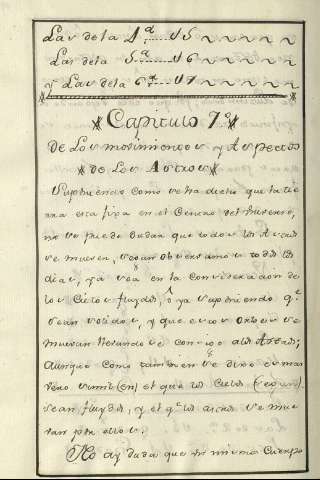 Las de la 4ª..... 15
Las de la 5ª..... 16
y Las de la 6ª... 17
Capitulo 7º
De Los movimientos y Aspectos
de Los Astros
Supuesto como se ha dicho que la tie
rra esta fixa en el Centro del Universo,
no se puede dudar que todos los Astros
se mueven, segun observamos todos los
dias, ya sea en la consideracion de
los Cielos fluydos, ô ya suponiendo q.e
sean solidos, y que estos Orbes se
muevan llevandose consigo a los Astros;
Aunque como tambien se dixo es mas
vero simil (en) el que los Cielos (segun)
sean fluydos, y el q.e los astros se mue
van por ellos.
No ay duda que un mismo Cuerpo